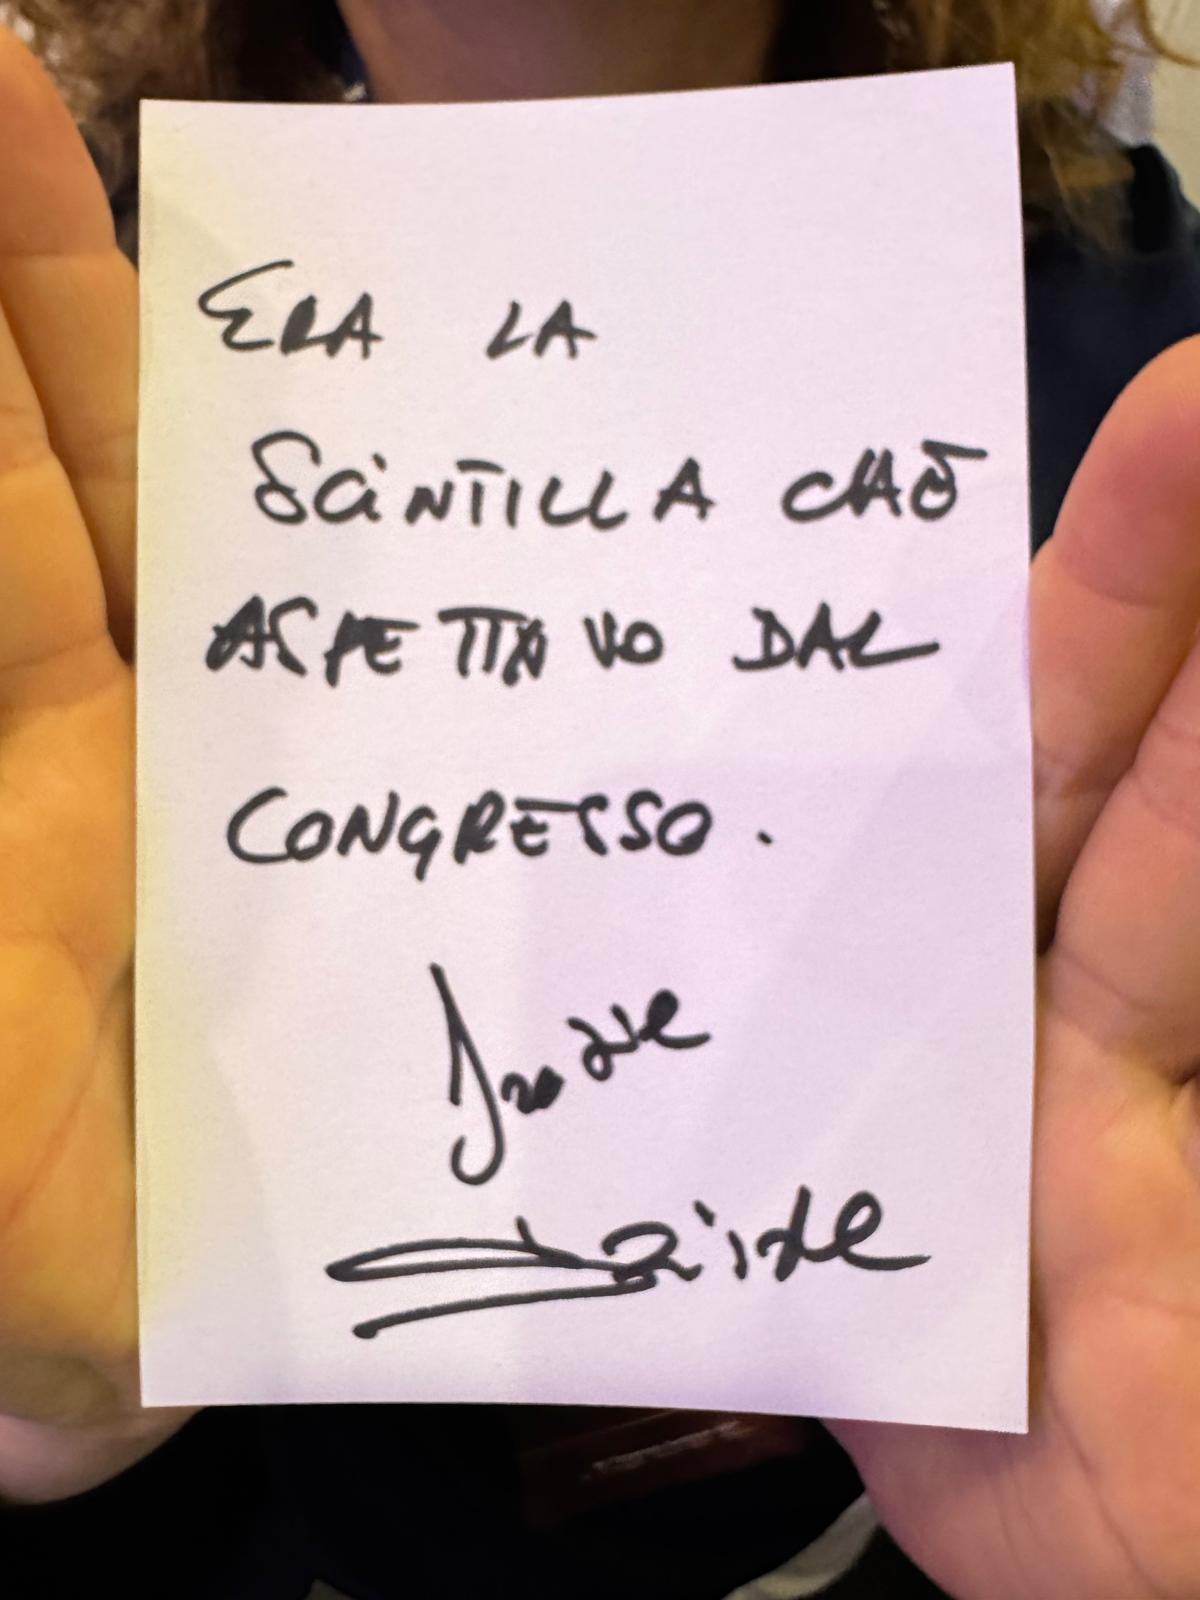 ERA LA
SCINTILLA CHE
ASPETTAVO DAL
CONGRESSO.
Davide